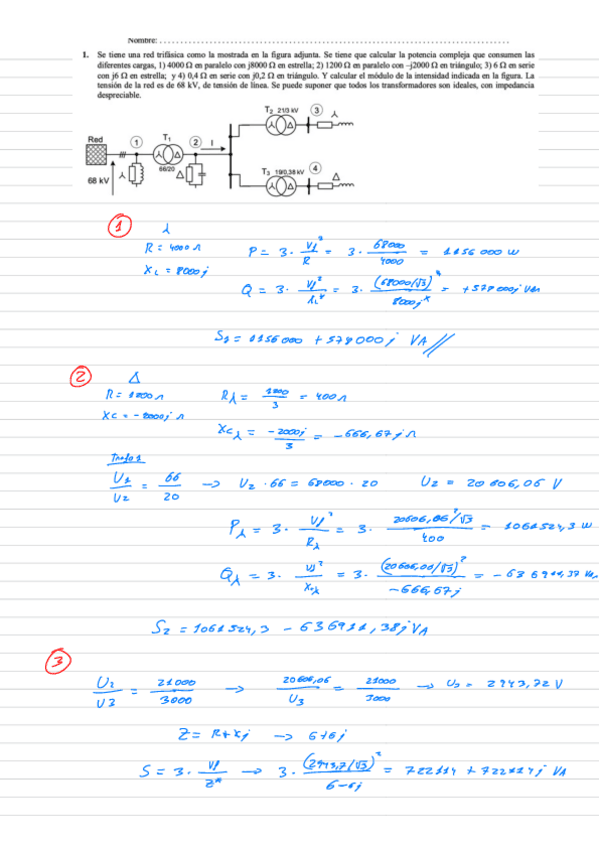 Nombre: ........................................................................
1. Se tiene una red trifásica como la mostrada en la figura adjunta. Se tiene que calcular la potencia compleja que consumen las
diferentes cargas, 1) 4000 Ω en paralelo con j8000 Ω en estrella; 2) 1200 Ω en paralelo con –j2000 Ω en triángulo; 3) 6 Ω en serie
con j6 Ω en estrella; y 4) 0,4 Ω en serie con j0,2 Ω en triángulo. Y calcular el módulo de la intensidad indicada en la figura. La
tensión de la red es de 68 kV, de tensión de línea. Se puede suponer que todos los transformadores son ideales, con impedancia
despreciable.
T₂ 21/3 kV 3 λ
Red 1 T₁ 2 I
66/20
68 kV λ Δ
T₃ 19/0,38 kV 4 Δ
1 λ
R = 4000 Ω P = 3 · Vf² / R = 3 · 68000 / 4000 = 1156000 W
XL = 8000j
Q = 3 · Vf² / XL* = 3 · (68000/√3)² / 8000j* = +578000j VAr
S1 = 1156000 + 578000j VA //
2 Δ
R = 1200 Ω Rλ = 1200 / 3 = 400 Ω
XC = -2000j Ω XCλ = -2000j / 3 = -666,67j Ω
Trafo 1
U1 / U2 = 66 / 20 → U2 · 66 = 68000 · 20 U2 = 20606,06 V
Pλ = 3 · Vf² / Rλ = 3 · 20606,06²/√3 / 400 = 1061524,3 W
Qλ = 3 · Vf² / Xcλ = 3 · (20606,06/√3)² / -666,67j = -636914,37 VAr
S2 = 1061524,3 - 636914,38j VA
3
U2 / U3 = 21000 / 3000 → 20606,06 / U3 = 21000 / 3000 → U3 = 2943,72 V
Z = R+Xj → 6+6j
S = 3 · Vf² / Z* → 3 · (2943,7/√3)² / 6-6j = 722114 + 722114j VA